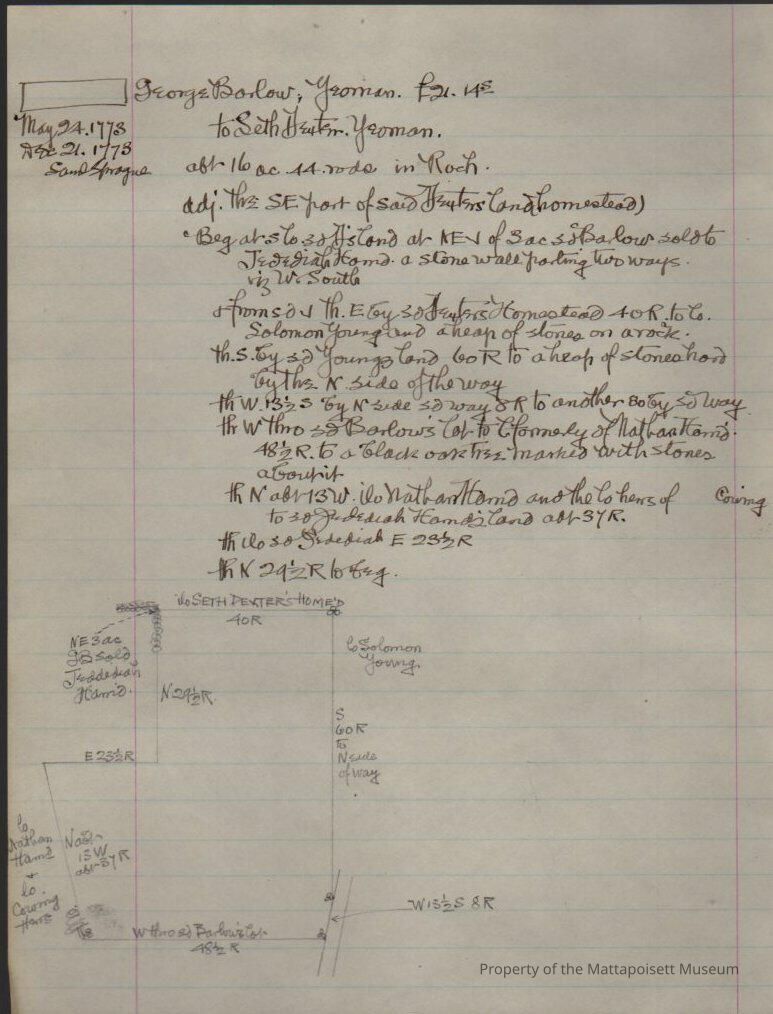 George Barlow, Yeoman. £21. 14s
May 24. 1773
to Seth Dexter. Yeoman.
Dec 21. 1773
Saml Sprague
abt 16 ac. 44. rods in Roch.
adj. the SE part of said Dexters land (homestead)
Beg at S lo sd Ds land at NE of 3 ac sd Barlow sold to
Jedediah Hamd. a stone wall parting two ways.
viz W. South
& from sd th. E by sd Dexters Homestead 40 R. to lo.
Solomon Young and a heap of stones on a rock.
th. S. by sd Youngs land 60 R to a heap of stones hard
by the N. side of the way
th W. 13½ S by N side sd way 8 R to another bo by sd way
th W thro sd Barlow's lot to formerly of Nathan Hamd.
48½ R. to a black oak tree marked with stones
about it
th N abt 13 W. i lo Nathan Hamd and the lo heirs of Cowing
to sd Jedediah Hamd's land abt 37 R.
th i lo sd Jedediah E 23½ R
th N 29½ R to beg.
i lo SETH DEXTER'S HOME'D
40 R
NE 3 ac
GB sold
Jeddediah
Ham'd.
lo Solomon
Young.
N 29½ R.
S
60 R
to
N side
of way
E 23½ R
lo
Nathan
Hamd
+
lo.
Cowing
Heirs
N abt
13 W
abt 37 R
W 13½ S 8 R
W thro sd Barlow's lot
48½ R
Property of the Mattapoisett Museum